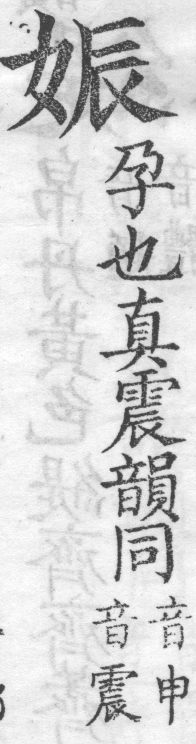 娠
孕也真震韻同
音申
音震